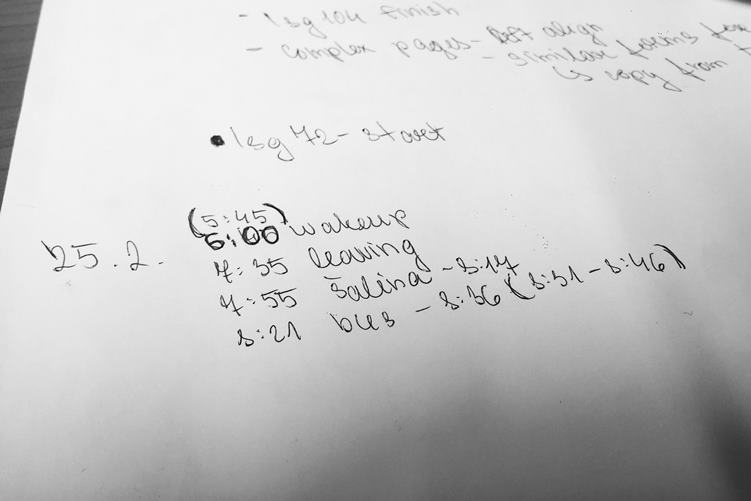 - lsg 104 finish
- complex pages - left align
- similar forms
copy from
• lsg 72 - start
(5:45)
25.2. 6:00 wakeup
7:35 leaving
7:55 šalina - 8:17
8:21 bus - 8:36 (8:31 - 8:46)